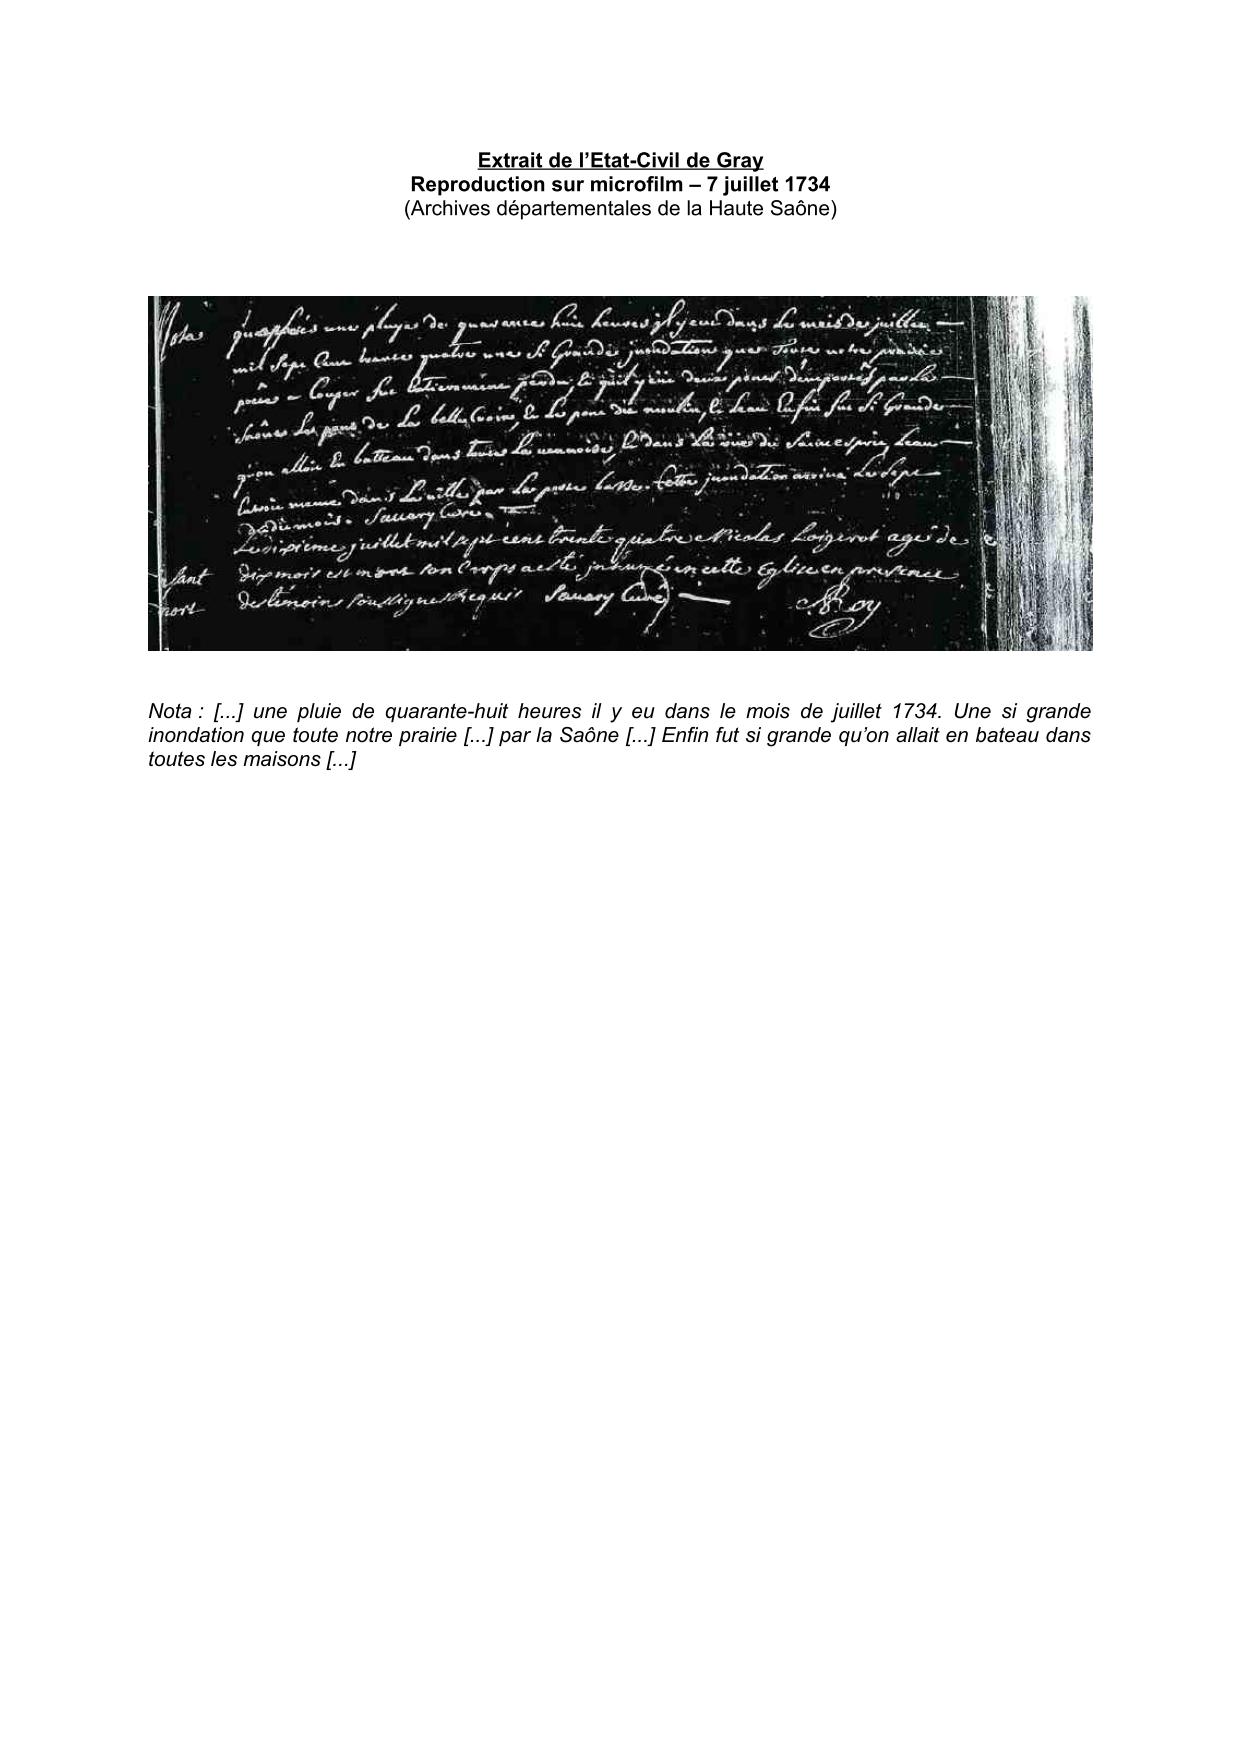 Extrait de l'Etat-Civil de Gray
Reproduction sur microfilm – 7 juillet 1734
(Archives départementales de la Haute Saône)
Nota quapprès une pluye de quarante huit heures il y eut dans le mois de juillet
mil sept cent trente quatre une si Grande jnondation que toute notre prairie
preste a Couper fut entierement perdu, et quil y eut deux ponts démportés par la
Saône Le pont de La belle Croix, et Le pont du moulin, et Leau Enfin fut si Grande
qu'on alloit En batteau dans toutes Les maisons, et dans La rue du Saint esprit, Leau
Entroit meme dans La ville par La porte basse. Cette jnondation arriva Le sept
dudit mois. Sauary Curé.
Le dixieme juillet mil sept cent trente quatre Nicolas Loigerot agé de
fant dix mois est mort son Corps a esté jnhumé en cette Eglise en presence
mort des témoins soussignes Requis Sauary Curé Roy
Nota : [...] une pluie de quarante-huit heures il y eu dans le mois de juillet 1734. Une si grande
inondation que toute notre prairie [...] par la Saône [...] Enfin fut si grande qu'on allait en bateau dans
toutes les maisons [...]